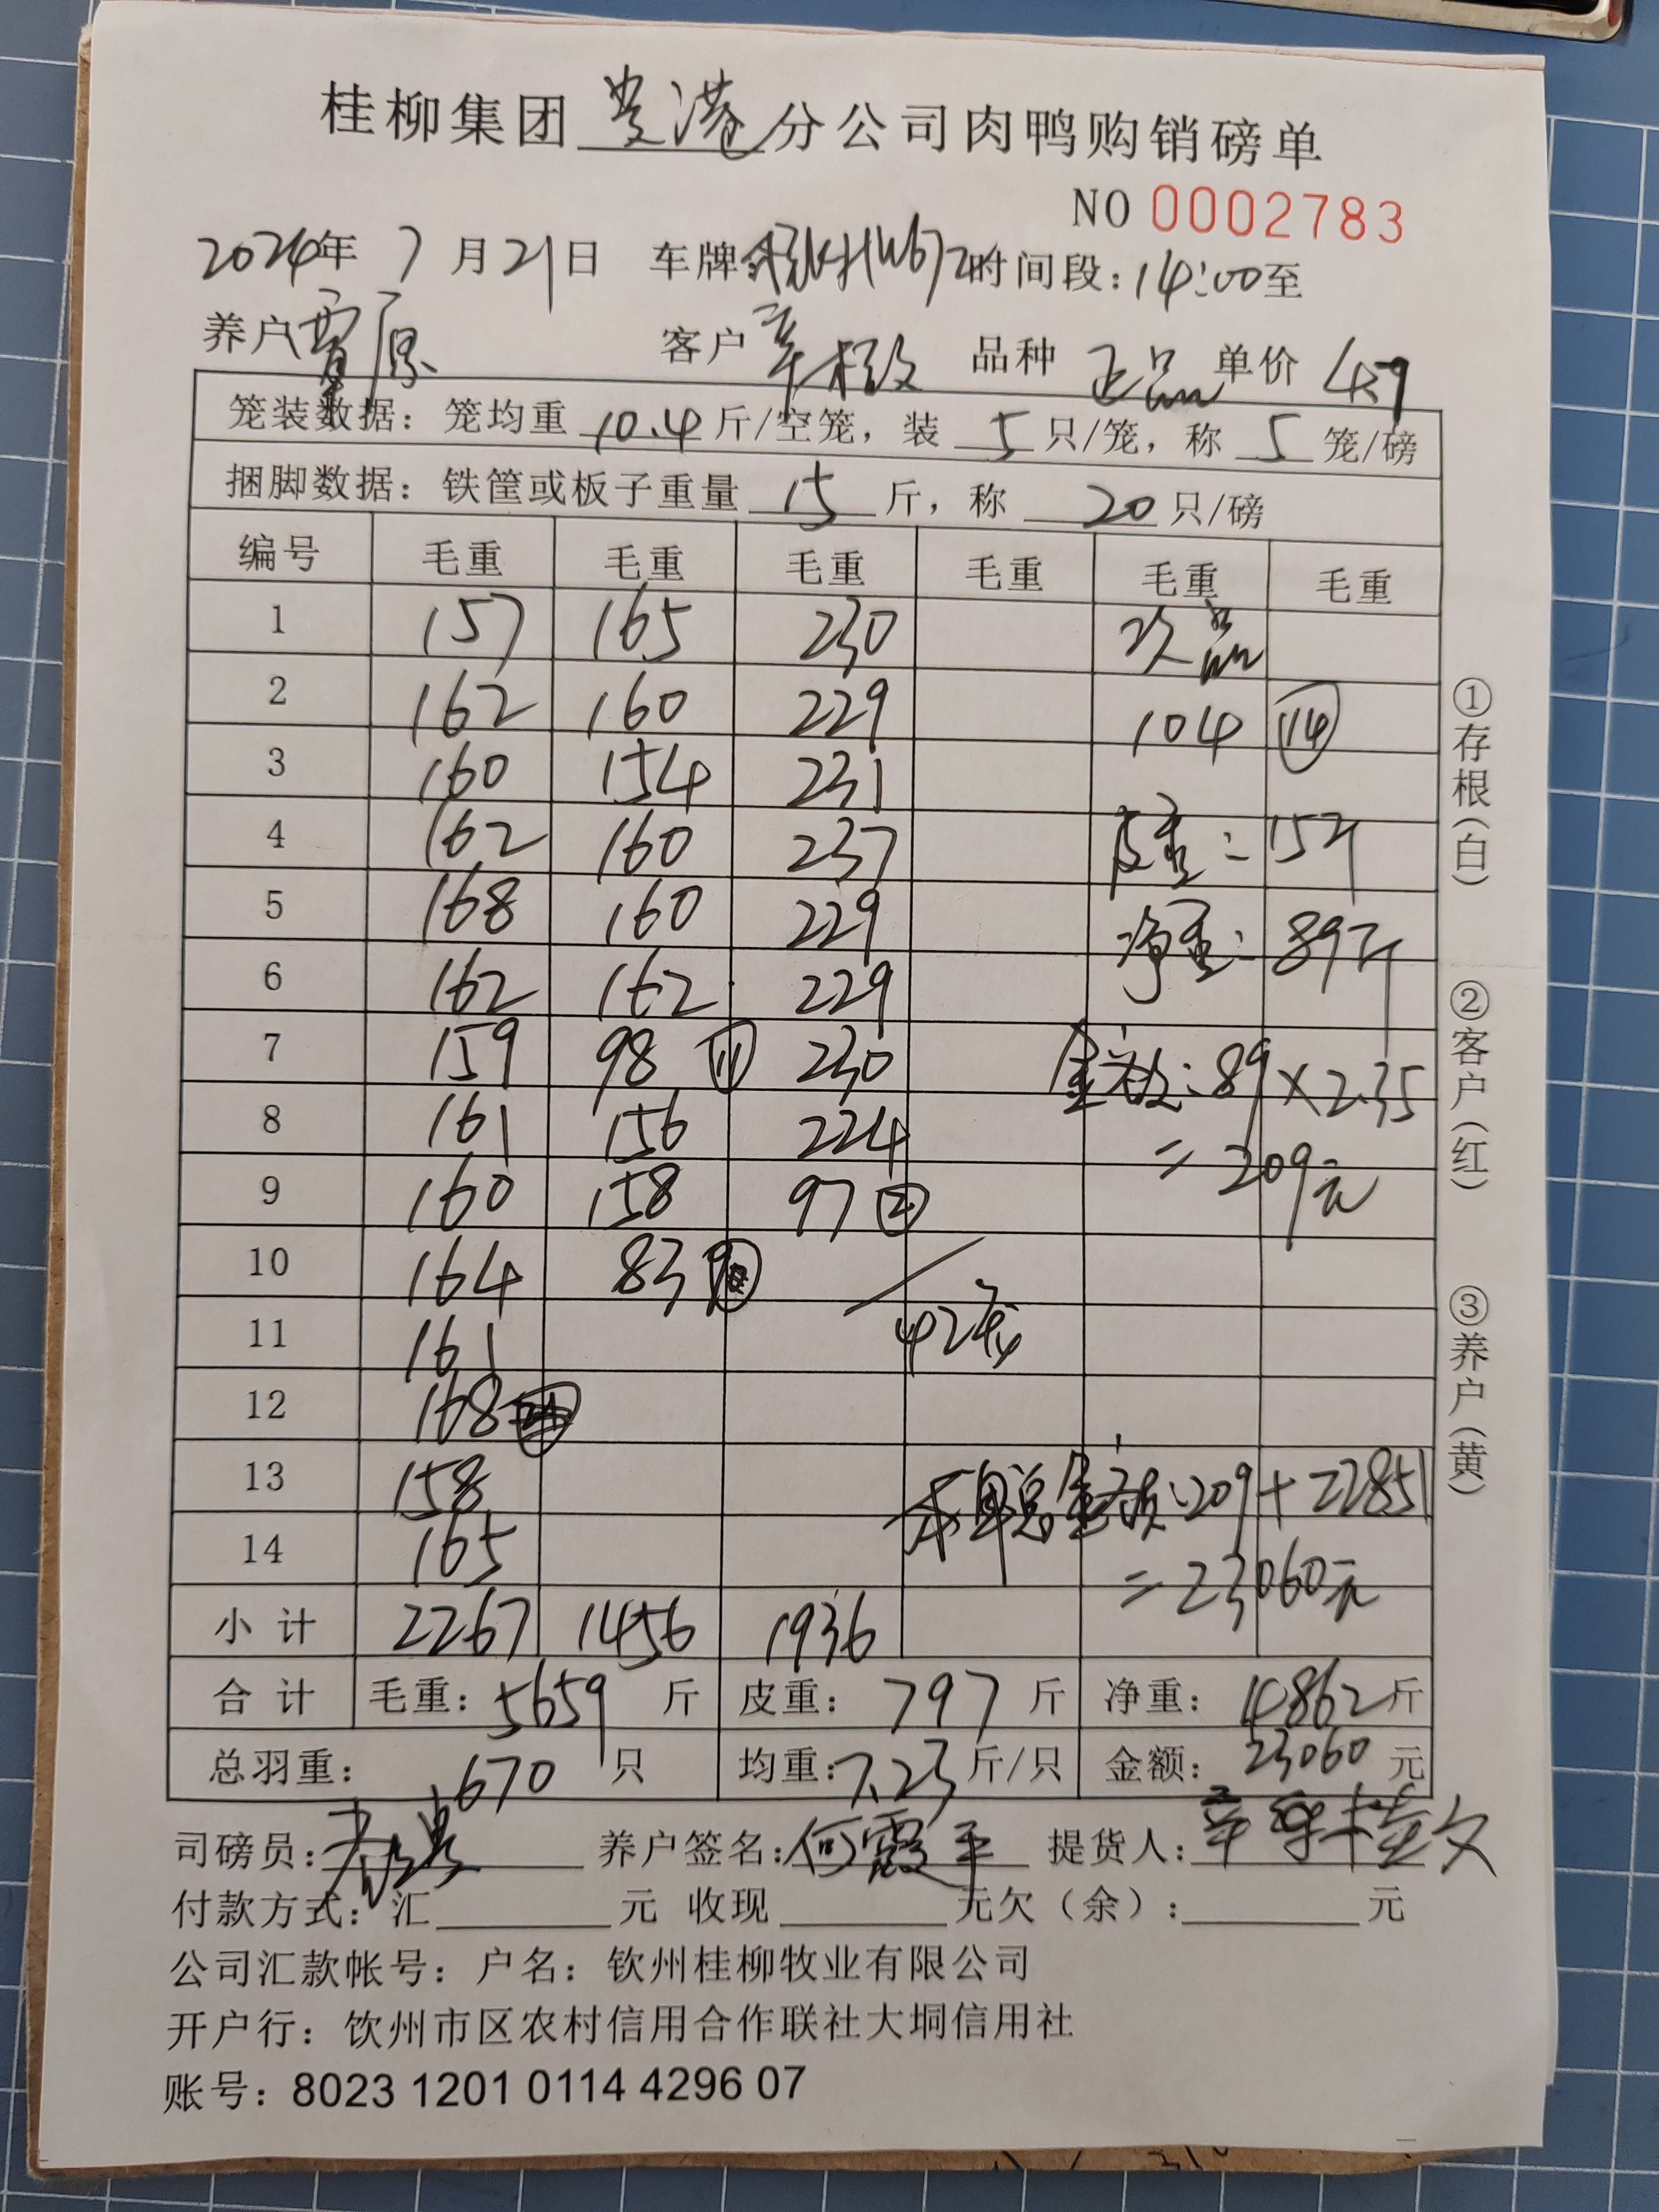 桂柳集团 贵港 分公司肉鸭购销磅单
NO 0002783
2024年 7 月 21 日 车牌 时间段：14:00至
养户 覃原 客户 品种 正品 单价 4.7
笼装数据：笼均重 10.4 斤/空笼，装 5 只/笼，称 5 笼/磅
捆脚数据：铁筐或板子重量 15 斤，称 20 只/磅
编号 毛重 毛重 毛重 毛重 毛重 毛重
1 157 165 230 次品
2 162 160 229 104 ⑭
3 160 154 231
4 162 160 237 皮重：15斤
5 168 160 229 净重：89斤
6 162 162 229
7 159 98 ⑪ 230 金额：89×2.35
8 161 156 224 =209元
9 160 158 97 ②
10 164 83 9
11 161 42笼
12 168
13 158 本单总金额：209+22851
14 165 =23060元
小计 2267 1456 1936
合计 毛重：5659 斤 皮重：797 斤 净重：4862斤
总羽重： 670 只 均重：7.23斤/只 金额：23060 元
司磅员： 养户签名：何霞平 提货人：
付款方式：汇 元 收现 元欠（余）： 元
公司汇款帐号：户名：钦州桂柳牧业有限公司
开户行：饮州市区农村信用合作联社大垌信用社
账号：8023 1201 0114 4296 07
①存根（白）
②客户（红）
③养户（黄）